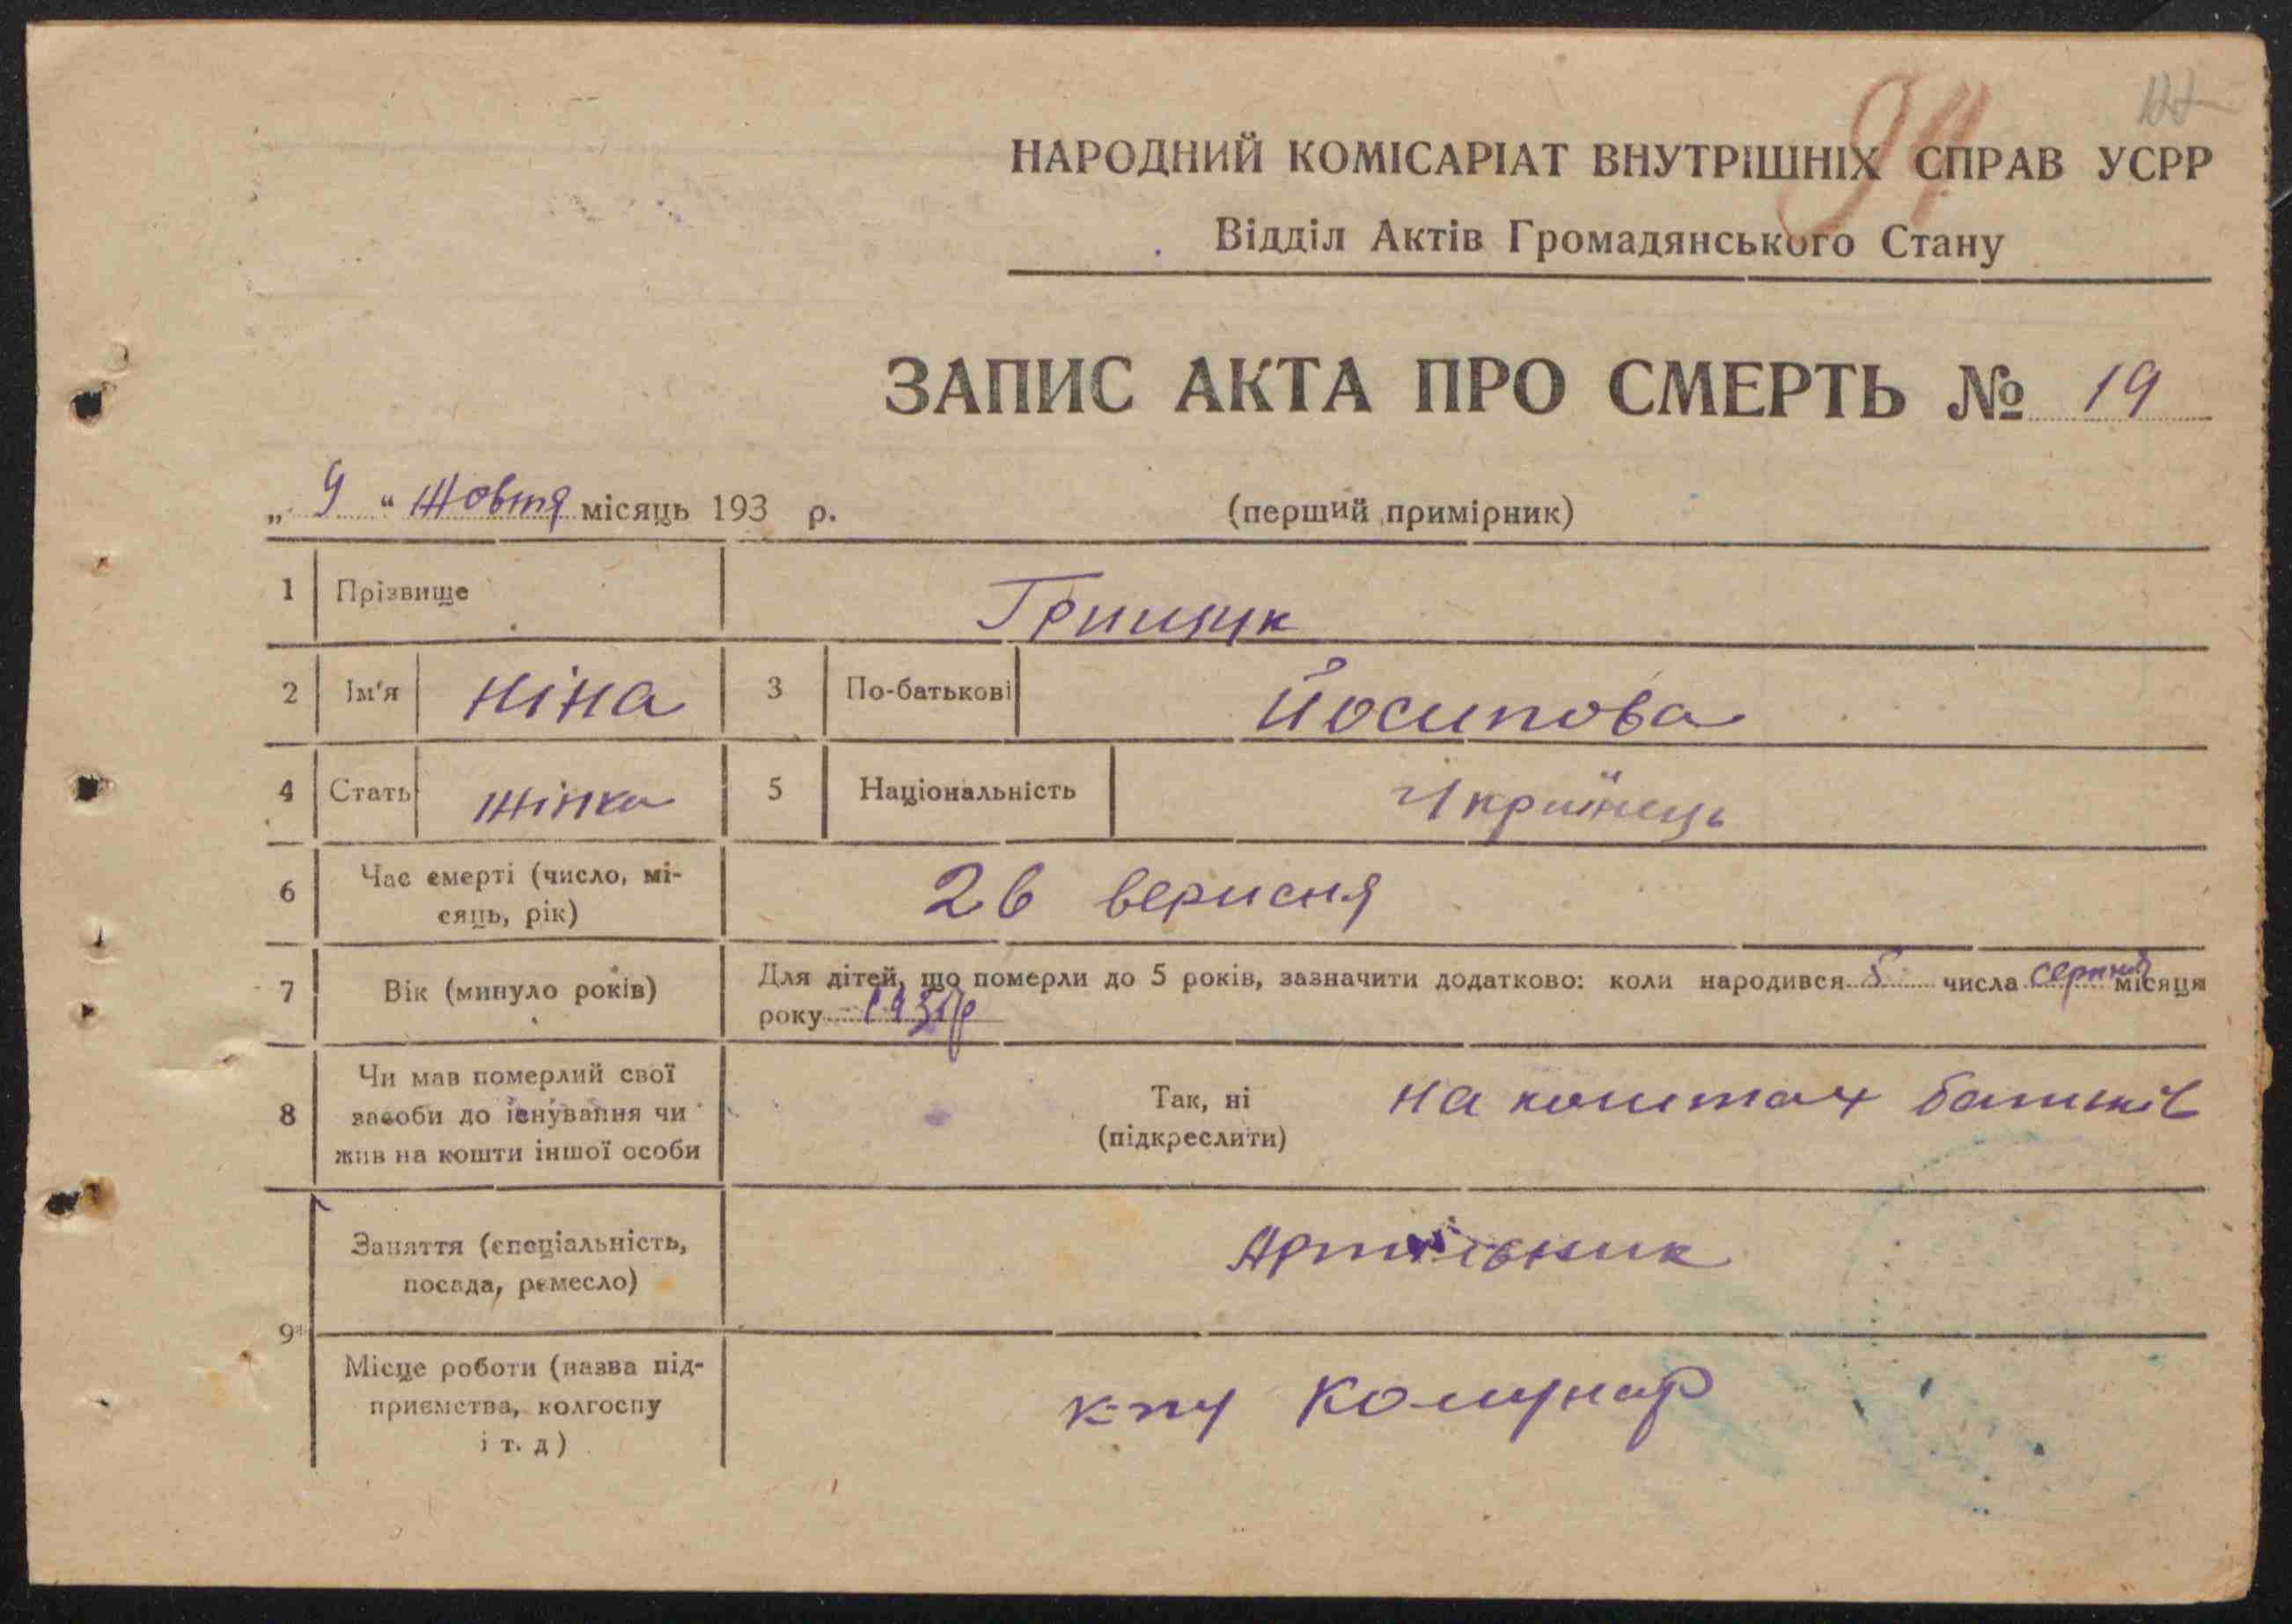 94
НАРОДНИЙ КОМІСАРІАТ ВНУТРІШНІХ СПРАВ УСРР
Відділ Актів Громадянського Стану
ЗАПИС АКТА ПРО СМЕРТЬ № 19
„ 9 “ Жовтя місяць 193 р. (перший примірник)
1 Прізвище Грищук
2 Ім'я Ніна 3 По-батькові Йосипова
4 Стать жінка 5 Національність Українець
6 Час смерті (число, мі-
сяць, рік) 26 вересня
7 Вік (минуло років) Для дітей, що померли до 5 років, зазначити додатково: коли народився 5 числа серпня місяця
року
8 Чи мав померлий свої
засоби до існування чи
жив на кошти іншої особи
Так, ні
(підкреслити)
на коштах батьків
9 Заняття (спеціальність,
посада, ремесло) Артільник
Місце роботи (назва під-
приємства, колгоспу
і т. д) к-пу Комунар